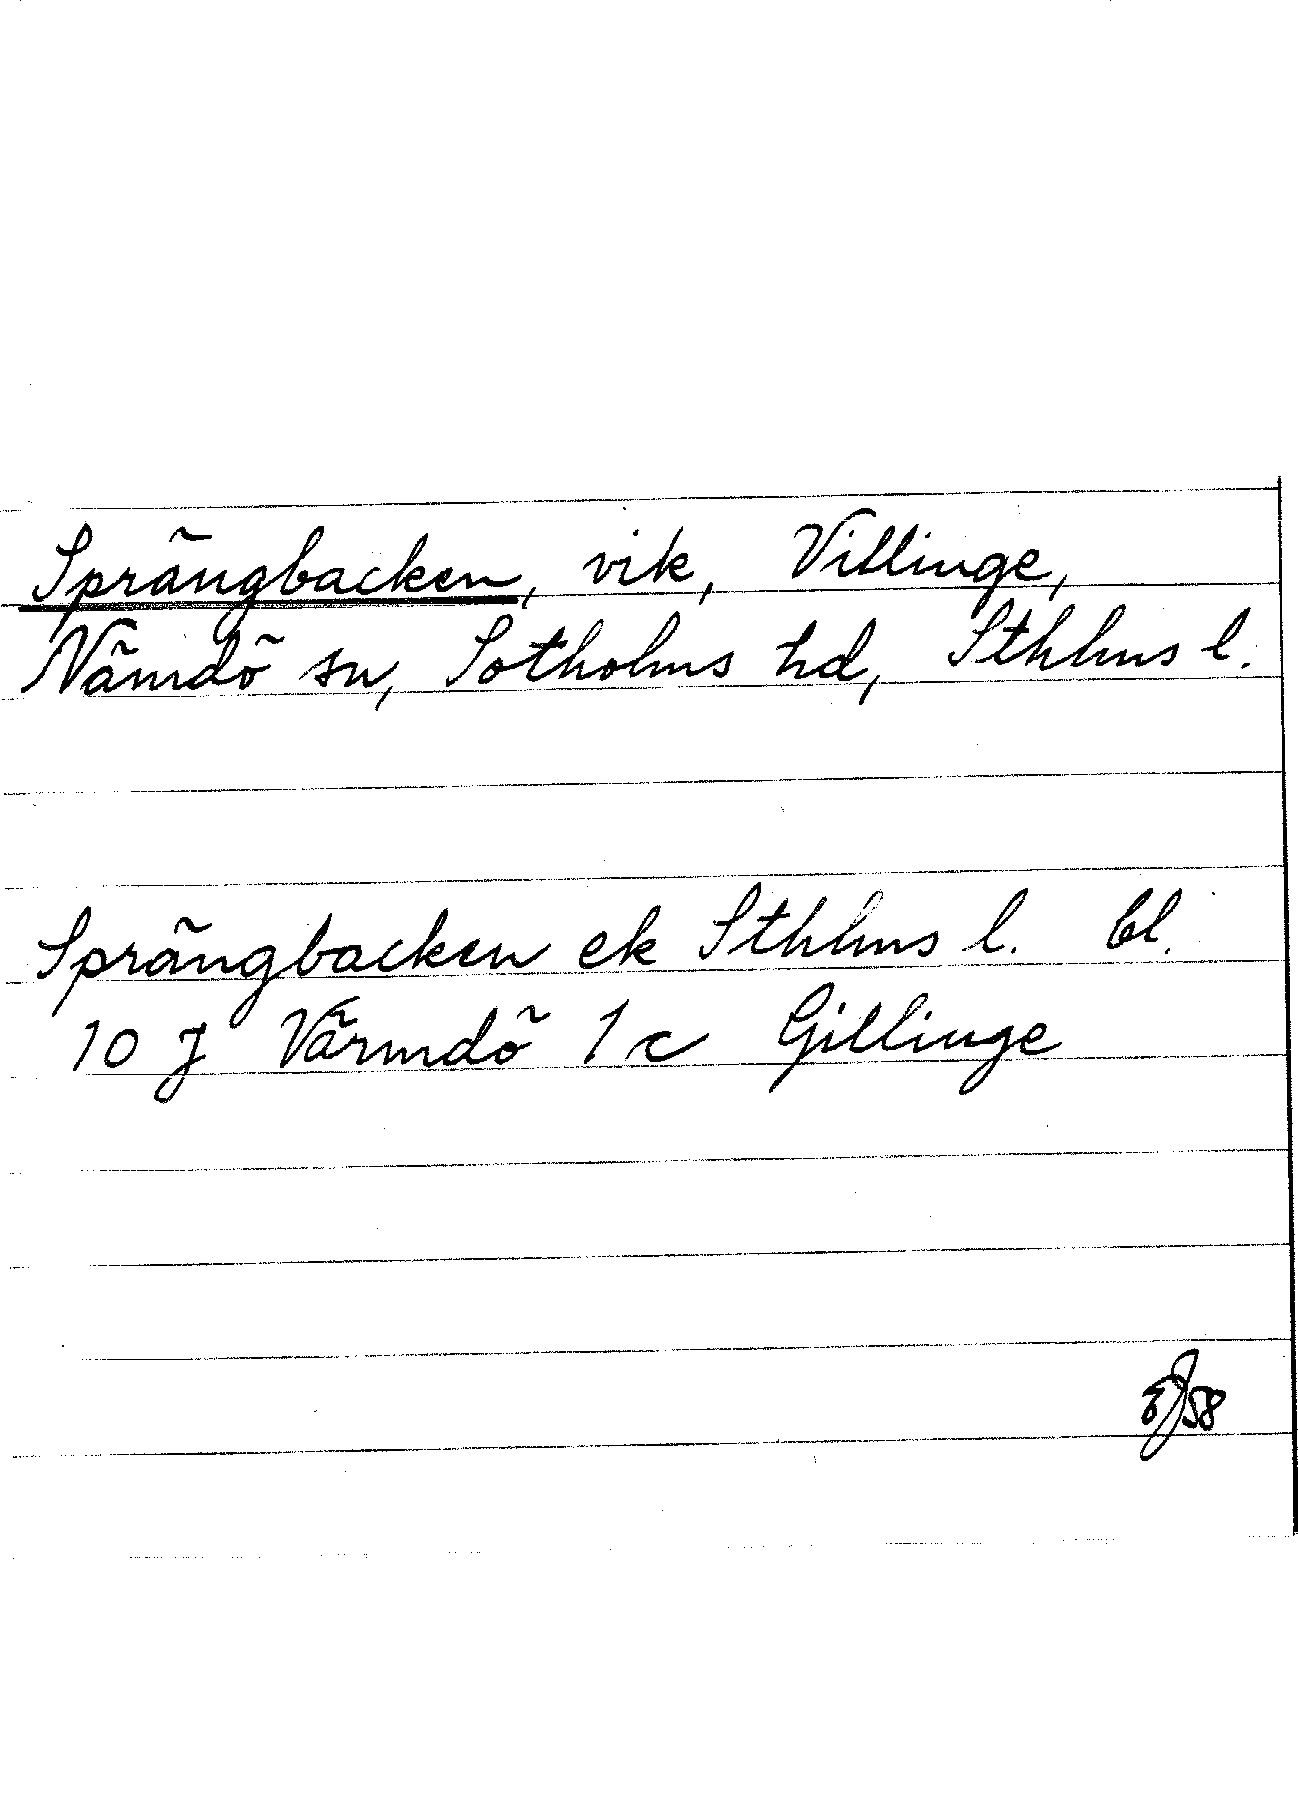 Sprängbacken, vik, Villinge,
Nämdö sn, Sotholms hd, Sthlms l.
Sprängbacken ek Sthlms l. bl.
10 J Värmdö 1 c Gillinge
EJ 58